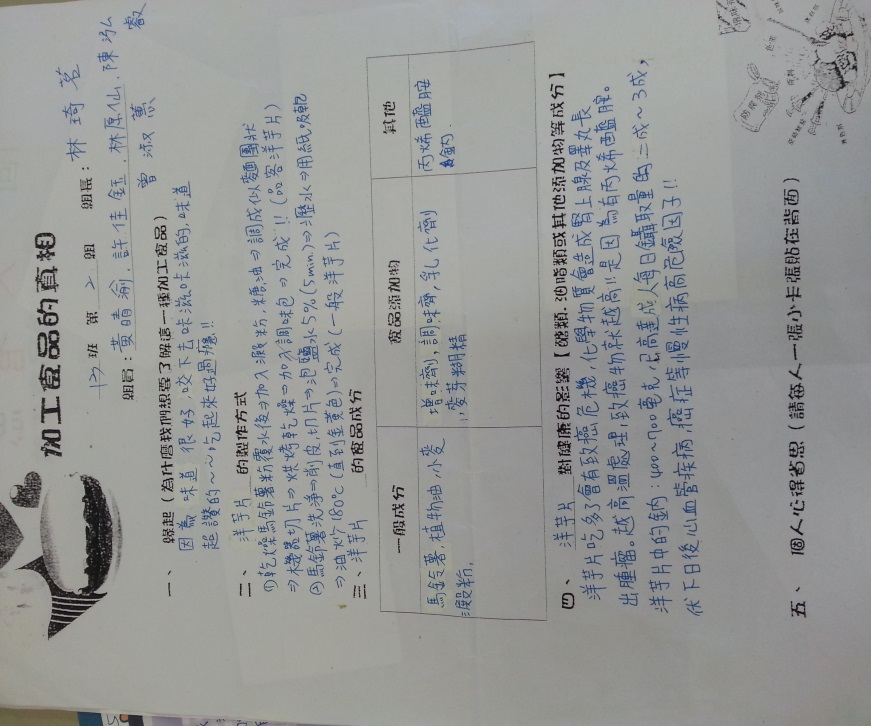 加工食品的真相
13 班 第 2 組 組長：林琦茗
組員：黃晴渝.許佳鈺.林原仙.陳泓叡
曾淑薰
一、 緣起（為什麼我們想要了解這一種加工食品）
因為味道很好,咬下去味滋味滋的,味道
超讚的～～,吃起來好過癮!!
二、 洋芋片 的製作方式
①乾燥馬鈴薯粉覆水後⇒加入澱粉,糖,油⇒調成似麵團狀
⇒機器切片⇒烘烤乾燥⇒加入調味包⇒完成!!(品客洋芋片)
②馬鈴薯洗淨⇒削皮,切片⇒泡鹽水5%(5min)⇒瀝水⇒用紙吸乾
⇒油炒180°C(直到金黃色)⇒完成(一般洋芋片)
三、洋芋片 的食品成分
一般成分 食品添加物 其他
馬鈴薯,植物油,小麥 增味劑,調味齊,乳化劑 丙烯醯胺
澱粉, ,麥芽糊精 鈉.
四、 洋芋片 對健康的影響【醣類.油脂類或其他添加物等成分】
洋芋片吃多了會有致癌危機,化學物質會造成腎上腺及睪丸長
出腫瘤。越高溫處理,致癌物就越高!!是因為有丙烯醯胺。
洋芋片中的鈉:400~700毫克,已高達成人每日鑷取量的二成~3成,
伏下日後,心血管疾病,癌症等慢性病高危險因子!!
五、 個人心得省思（請每人一張小卡張貼在背面）